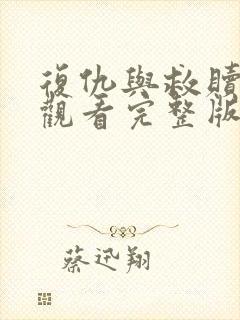 復仇與救贖
觀看完整版
蔡迅翔